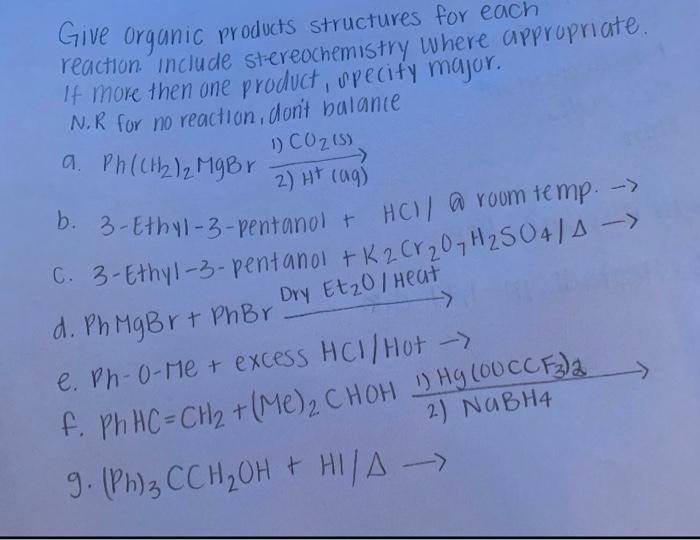 Give organic products structures for each
reaction include stereochemistry where appropriate.
If more then one product, specify major.
N.R for no reaction, don't balance
a. Ph(CH2)2MgBr 1) CO2(s) 2) H+ (aq) →
b. 3-Ethyl-3-pentanol + HCl / @ room temp. →
c. 3-Ethyl-3-pentanol + K2Cr2O7 H2SO4/Δ →
d. PhMgBr + PhBr Dry Et2O / Heat →
e. Ph-O-Me + excess HCl/Hot →
f. PhHC=CH2 + (Me)2CHOH 1) Hg(OOCCF3)2 2) NaBH4 →
g. (Ph)3CCH2OH + HI/Δ →